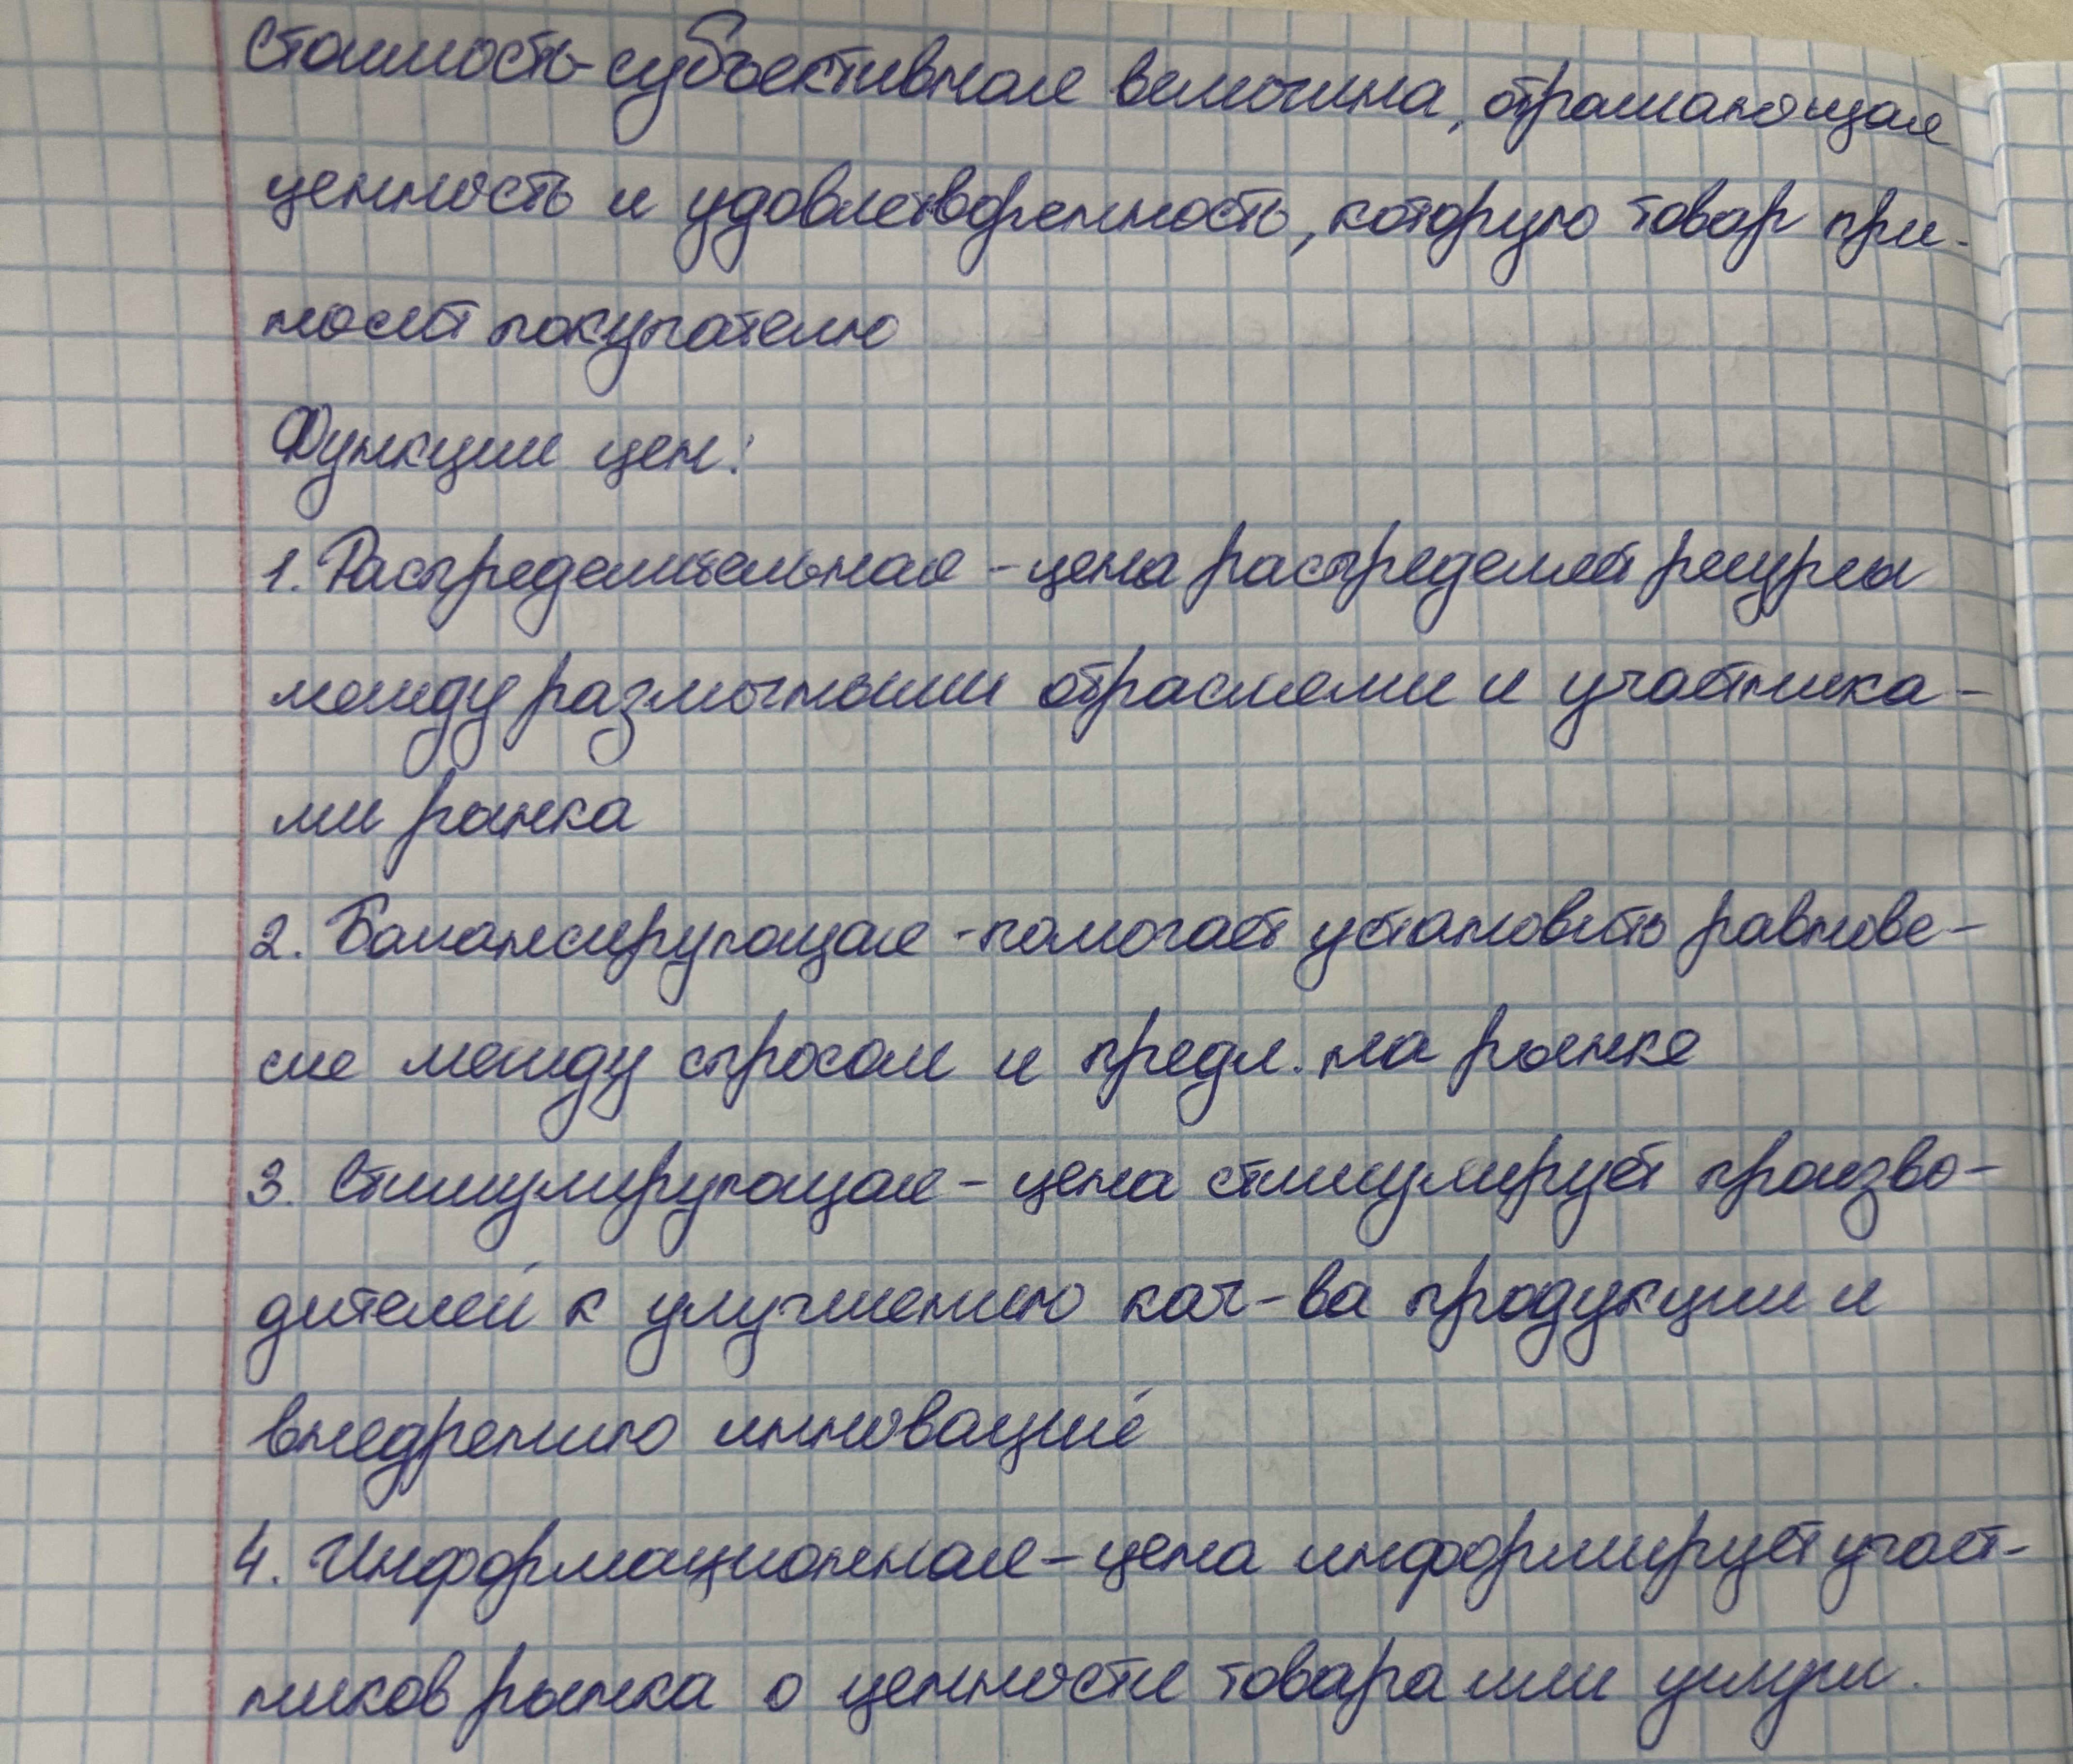 Стоимость-субъективная величина, отражающая
ценность и удовлетворенность, которую товар при-
носит покупателю
Функции цен:
1. Распределительная - цена распределяет ресурсы
между различными отраслями и участника-
ми рынка
2. Балансирующая - помогает установить равнове-
сие между спросом и предл. на рынке
3. Стимулирующая - цена стимулирует произво-
дителей к улучшению кач-ва продукции и
внедрению инноваций
4. Информационная - цена информирует участ-
ников рынка о ценности товара или услуги.